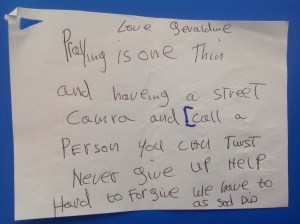 Love Geraldine
Praying is one Thin
and haveing a street
Camra and [call a
PERSON You Can Trust
Never give up HELP
Hard to Forgive We have to
as sod DID